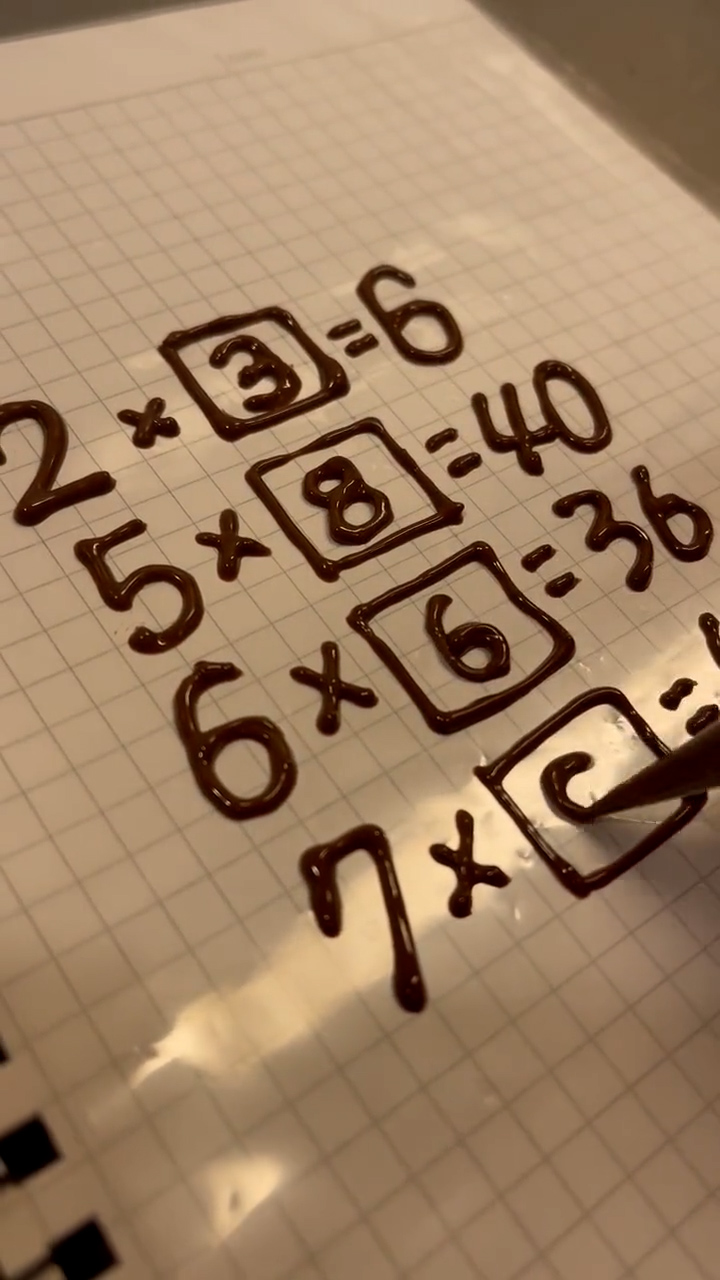 2 × 3 = 6
5 × 8 = 40
6 × 6 = 36
7 × =